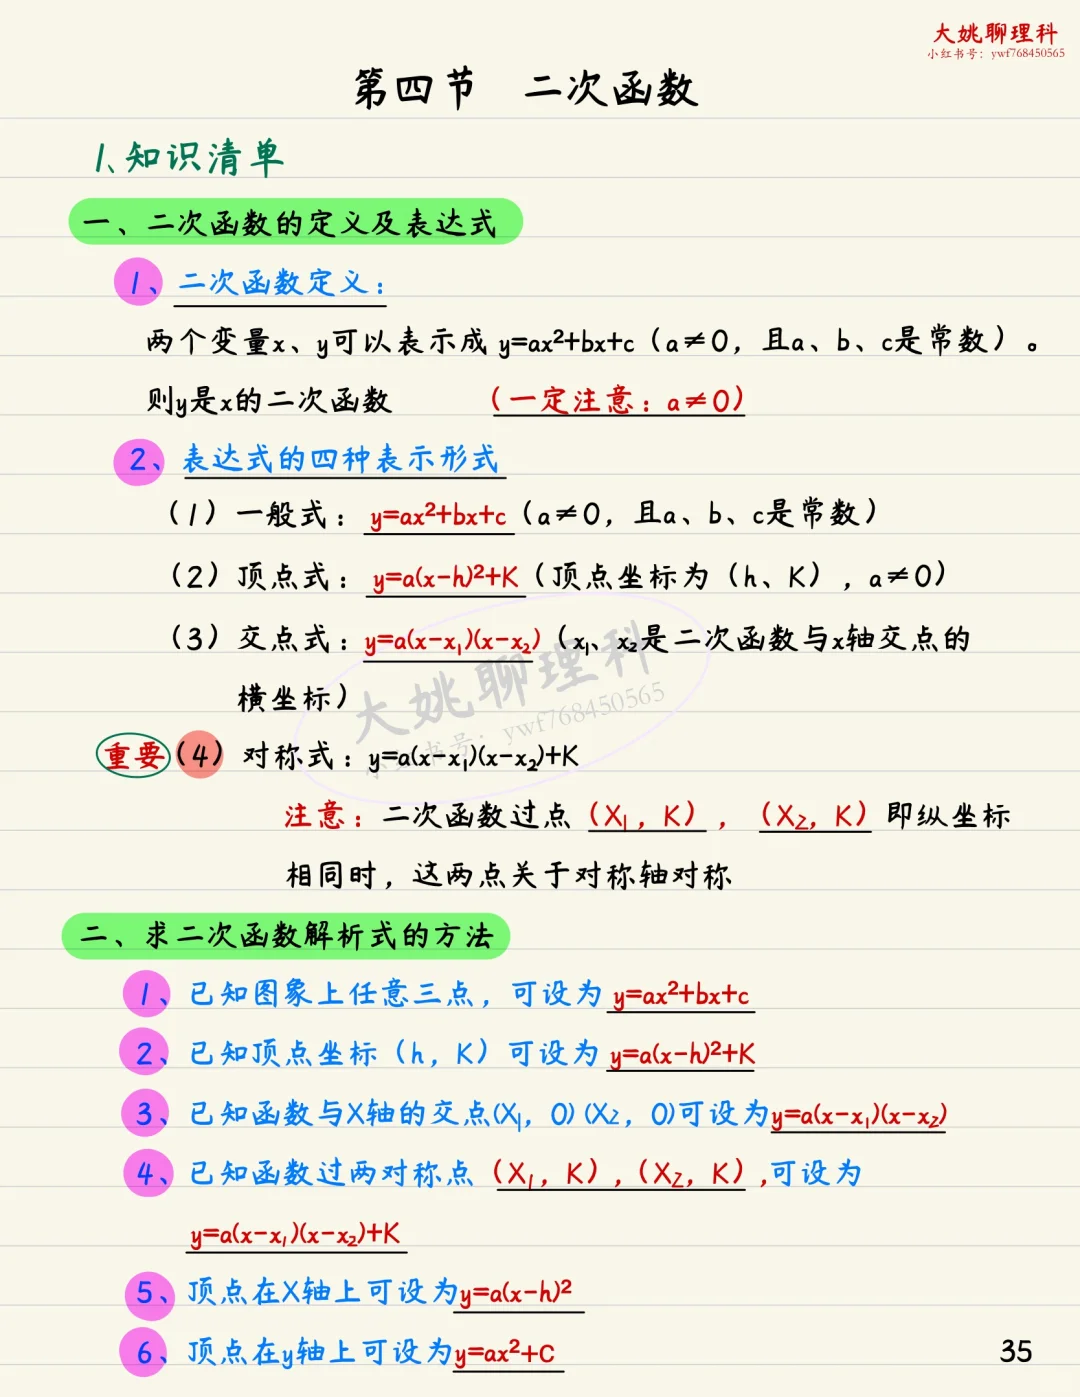 大姚聊理科
小红书号：ywf768450565
第四节 二次函数
1、知识清单
一、二次函数的定义及表达式
1、二次函数定义：
两个变量x、y可以表示成 y=ax²+bx+c（a≠0，且a、b、c是常数）。
则y是x的二次函数 （一定注意：a≠0）
2、表达式的四种表示形式
（1）一般式：y=ax²+bx+c（a≠0，且a、b、c是常数）
（2）顶点式：y=a(x-h)²+K（顶点坐标为（h、K），a≠0）
（3）交点式：y=a(x-x₁)(x-x₂)（x₁、x₂是二次函数与x轴交点的
横坐标）
大姚聊理科
小红书号：ywf768450565
重要（4）对称式：y=a(x-x₁)(x-x₂)+K
注意：二次函数过点（X₁，K），（X₂，K）即纵坐标
相同时，这两点关于对称轴对称
二、求二次函数解析式的方法
1、已知图象上任意三点，可设为 y=ax²+bx+c
2、已知顶点坐标（h，K）可设为 y=a(x-h)²+K
3、已知函数与X轴的交点(X₁，0) (X₂，0)可设为y=a(x-x₁)(x-x₂)
4、已知函数过两对称点（X₁，K），（X₂，K）,可设为
y=a(x-x₁)(x-x₂)+K
5、顶点在X轴上可设为y=a(x-h)²
6、顶点在y轴上可设为y=ax²+C
35